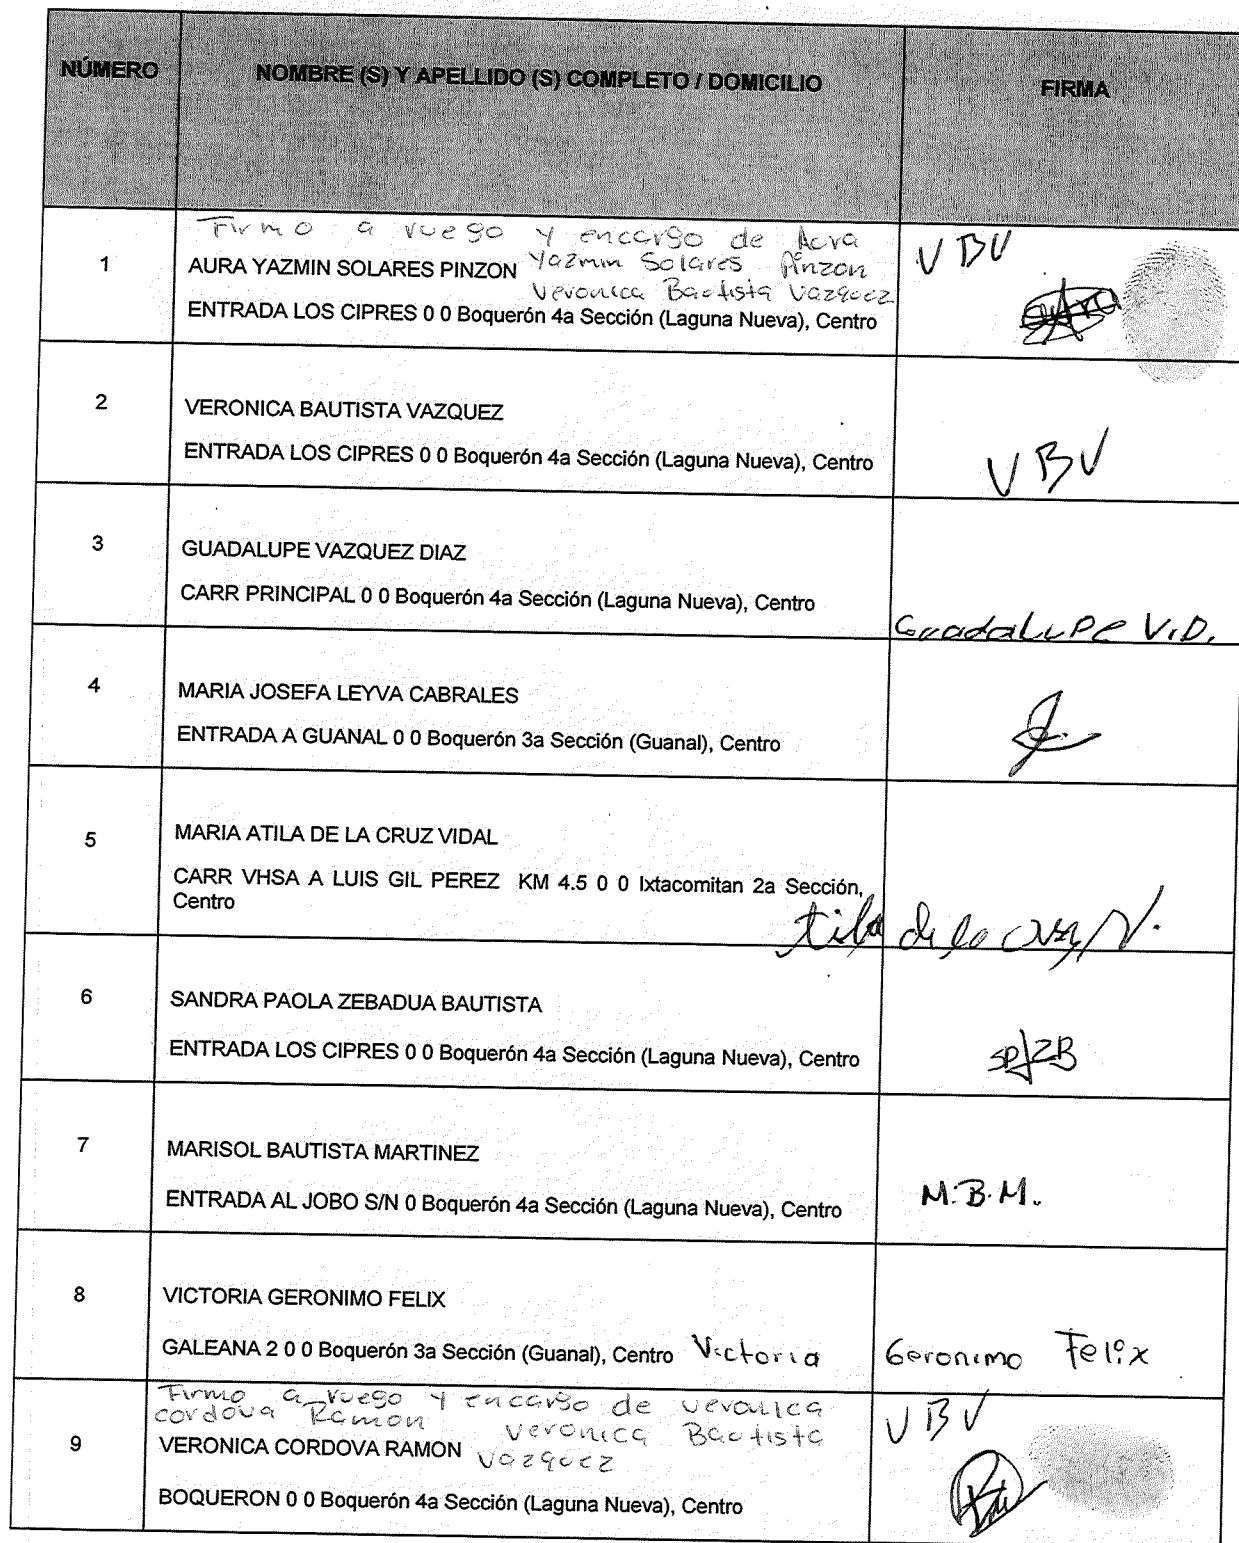 NÚMERO
NOMBRE (S) Y APELLIDO (S) COMPLETO / DOMICILIO
FIRMA
1
Firmo a ruego y encargo de Aura
AURA YAZMIN SOLARES PINZON Yazmin Solares Pinzon
Veronica Bautista Vazquez
ENTRADA LOS CIPRES 0 0 Boquerón 4a Sección (Laguna Nueva), Centro
VBV
2
VERONICA BAUTISTA VAZQUEZ
ENTRADA LOS CIPRES 0 0 Boquerón 4a Sección (Laguna Nueva), Centro
VBV
3
GUADALUPE VAZQUEZ DIAZ
CARR PRINCIPAL 0 0 Boquerón 4a Sección (Laguna Nueva), Centro
Guadalupe V.D.
4
MARIA JOSEFA LEYVA CABRALES
ENTRADA A GUANAL 0 0 Boquerón 3a Sección (Guanal), Centro
5
MARIA ATILA DE LA CRUZ VIDAL
CARR VHSA A LUIS GIL PEREZ KM 4.5 0 0 Ixtacomitan 2a Sección,
Centro
tila de la Cruz V.
6
SANDRA PAOLA ZEBADUA BAUTISTA
ENTRADA LOS CIPRES 0 0 Boquerón 4a Sección (Laguna Nueva), Centro
SPZB
7
MARISOL BAUTISTA MARTINEZ
ENTRADA AL JOBO S/N 0 Boquerón 4a Sección (Laguna Nueva), Centro
M.B.M.
8
VICTORIA GERONIMO FELIX
GALEANA 2 0 0 Boquerón 3a Sección (Guanal), Centro Victoria Geronimo Felix
9
Firmo a ruego y encargo de veronica
cordova Ramon Veronica Bautista
VERONICA CORDOVA RAMON Vazquez
BOQUERON 0 0 Boquerón 4a Sección (Laguna Nueva), Centro
VBV